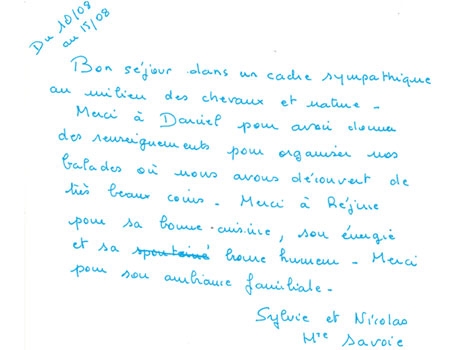 Du 10/08
au 15/08
Bon séjour dans un cadre sympathique
au milieu des chevaux et nature -
Merci à Daniel pour avoir donner
des renseignements pour organiser nos
balades où nous avons découvert de
très beaux coins - Merci à Réjine
pour sa bonne cuisine, son énergie
et sa spontainé bonne humeur - Merci
pour son ambiance familiale -
Sylvie et Nicolas
Hte Savoie